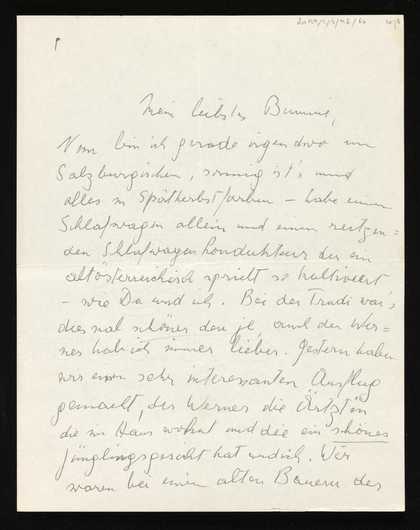 Mein liebstes Bummi,
Nun bin ich gerade irgendwo im
Salzburgischen, sonnig ist's und
alles in Spätherbstfarben – habe einen
Schlafwagen allein und einen reitzen=
den Schlafwagenkondukteur der ein
altösterreichisch spricht so kultiviert
– wie Du und ich. Bei der Trudi war's
diesmal schöner denn je, und den Wer=
ner hab ich immer lieber. Gestern haben
wir einen sehr interessanten Ausflug
gemacht, der Werner die Ärztin
die im Haus wohnt und die ein schönes
Jünglingsgesicht hat und ich. Wir
waren bei einem alten Bauern der